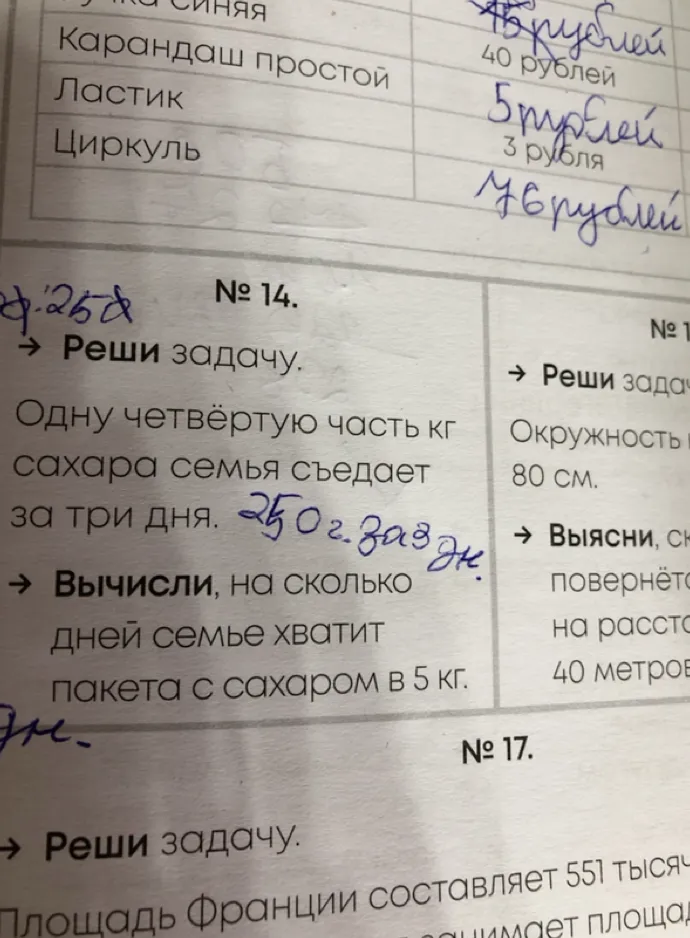 синяя
45 рублей
Карандаш простой
40 рублей
Ластик
5 рублей
Циркуль
3 рубля
76 рублей
№ 14.
→ Реши задачу.
Одну четвёртую часть кг
сахара семья съедает
за три дня. 250 г. за 3 дн.
→ Вычисли, на сколько
дней семье хватит
пакета с сахаром в 5 кг.
№ 1
→ Реши задач
Окружность
80 см.
→ Выясни, ск
повернётс
на рассто
40 метров
дн.
№ 17.
→ Реши задачу.
Площадь Франции составляет 551 тысяч
занимает площад